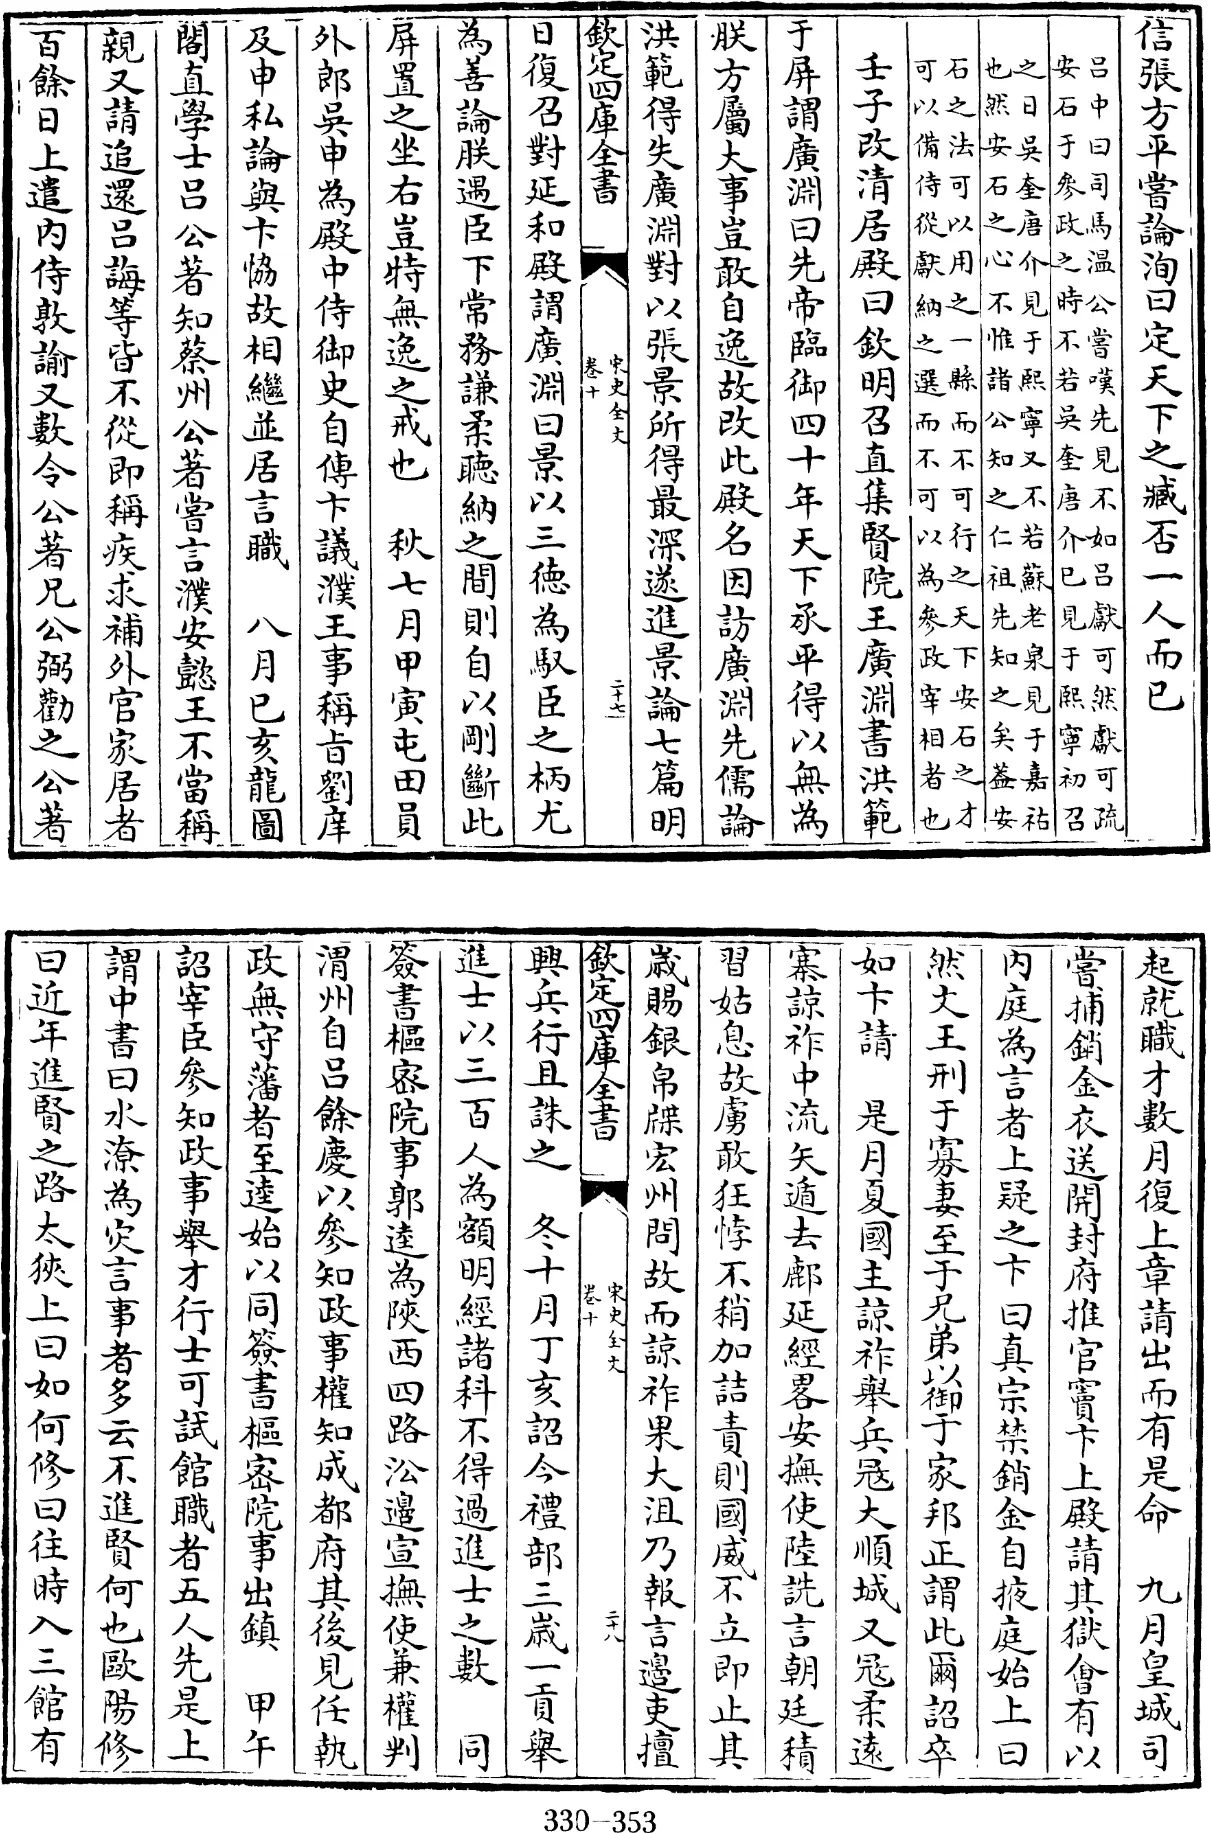 信張方平嘗論洵曰定天下之臧否一人而已
吕中曰司馬温公嘗嘆先見不如吕獻可然獻可疏
安石于參政之時不若吳奎唐介已見于熈寧初召
之日吳奎唐介見于熈寧又不若蘇老泉見于嘉祐
也然安石之心不惟諸公知之仁祖先知之矣葢安
石之法可以用之一縣而不可行之天下安石之才
可以備侍從獻納之選而不可以為參政宰相者也
壬子改清居殿曰欽明召直集賢院王廣淵書洪範
于屏謂廣淵曰先帝臨御四十年天下承平得以無為
朕方屬大事豈敢自逸故改此殿名因訪廣淵先儒論
洪範得失廣淵對以張景所得最深遂進景論七篇明
欽定四庫全書
宋史全文
卷十
二十七
日復召對延和殿謂廣淵曰景以三徳為馭臣之柄尤
為善論朕遇臣下常務謙柔聴納之間則自以剛斷此
屏置之坐右豈特無逸之戒也 秋七月甲寅屯田員
外郎吳申為殿中侍御史自傳卞議濮王事稱㫖劉庠
及申私論與卞恊故相繼並居言職 八月已亥龍圖
閣直學士吕公著知蔡州公著嘗言濮安懿王不當稱
親又請追還吕誨等皆不從即稱疾求補外官家居者
百餘日上遣内侍敦諭又數令公著兄公弼勸之公著
起就職才數月復上章請出而有是命 九月皇城司
嘗捕銷金衣送開封府推官竇卞上殿請其獄會有以
内庭為言者上疑之卞曰真宗禁銷金自掖庭始上曰
然文王刑于寡妻至于兄弟以御于家邦正謂此爾詔卒
如卞請 是月夏國主諒祚舉兵冦大順城又冦柔逺
寨諒祚中流矢遁去鄜延經畧安撫使陸詵言朝廷積
習姑息故虜敢狂悖不稍加詰責則國威不立即止其
歲賜銀帛牒宏州問故而諒祚果大沮乃報言邊吏擅
欽定四庫全書
宋史全文
卷十
二十八
興兵行且誅之 冬十月丁亥詔令禮部三嵗一貢舉
進士以三百人為額明經諸科不得過進士之數 同
簽書樞宻院事郭逵為陜西四路沿邉宣撫使兼權判
渭州自吕餘慶以參知政事權知成都府其後見任執
政無守藩者至逵始以同簽書樞宻院事出鎮 甲午
詔宰臣參知政事舉才行士可試館職者五人先是上
謂中書曰水潦為災言事者多云不進賢何也歐陽修
曰近年進賢之路太狹上曰如何修曰往時入三館有
330-353